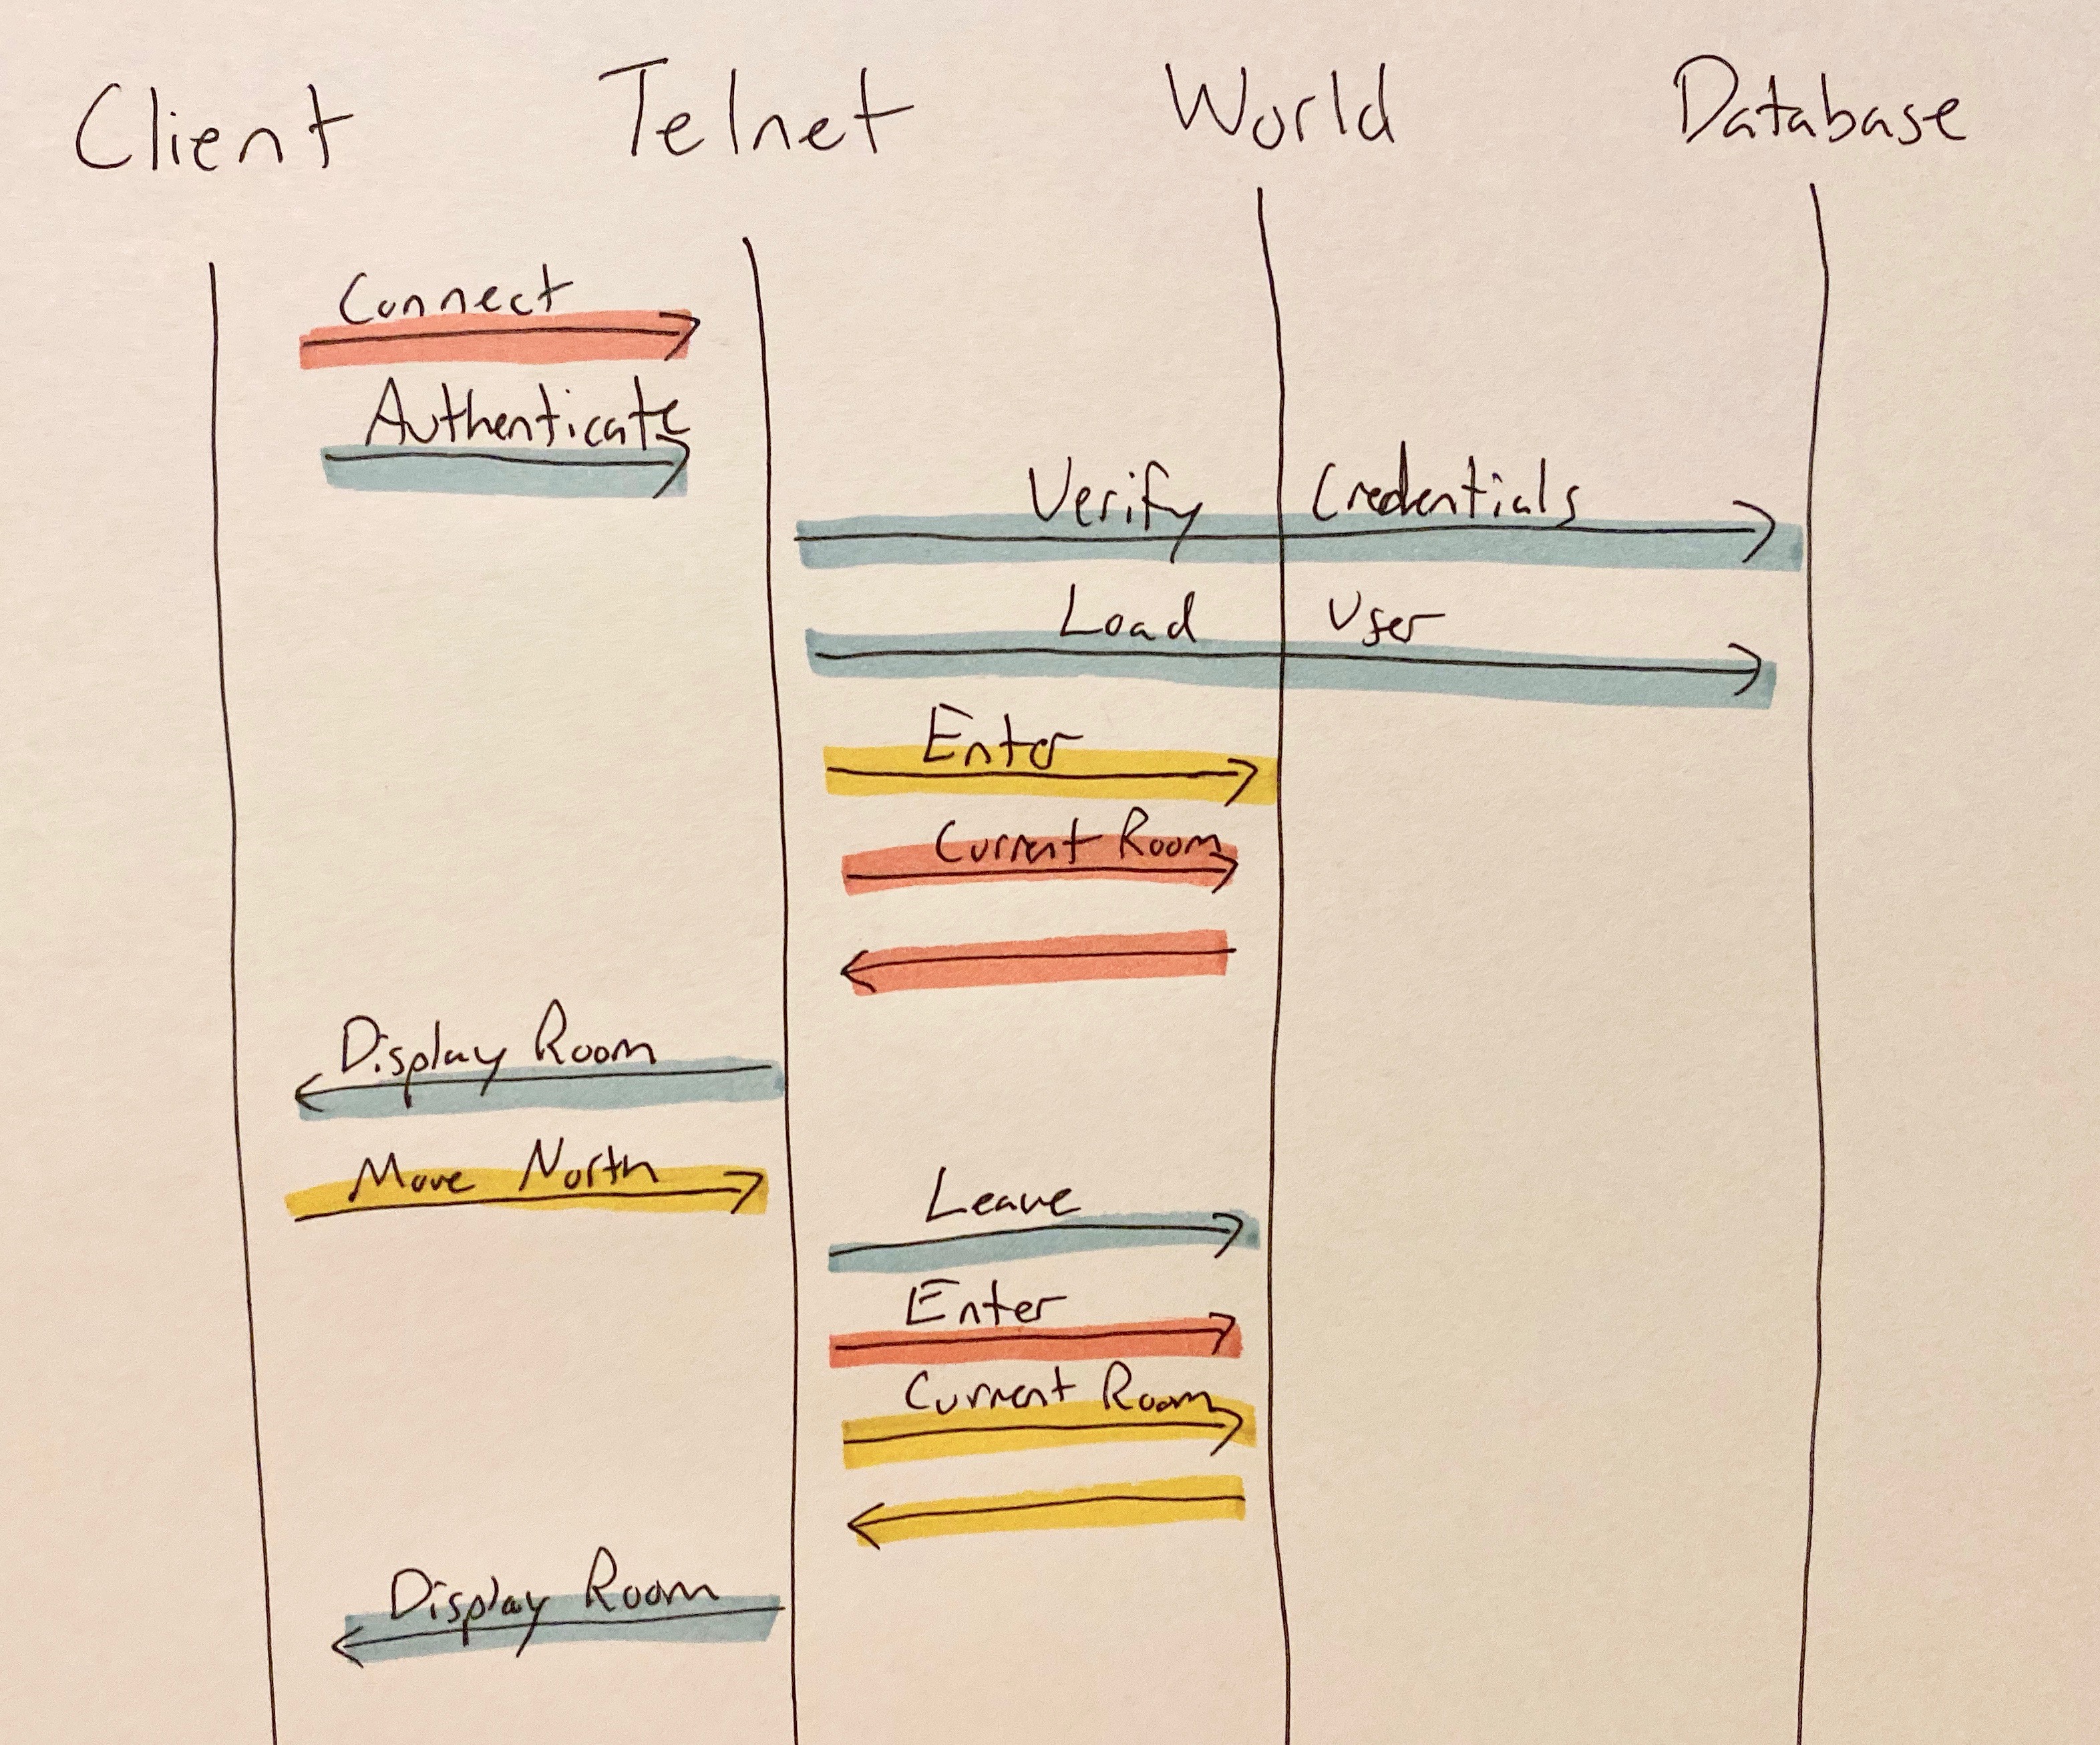 Client Telnet World Database
Connect
Authenticate
Verify Credentials
Load User
Enter
Current Room
Display Room
Move North
Leave
Enter
Current Room
Display Room